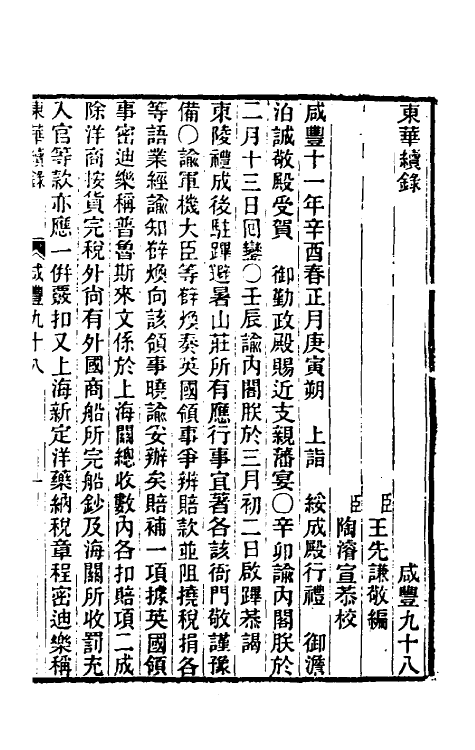 東華續錄　咸豐九十八
臣王先謙敬編
臣陶濬宣恭校
咸豐十一年辛酉春正月庚寅朔　上詣　綏成殿行禮　御澹
泊誠敬殿受賀　御勤政殿賜近支親藩宴〇辛卯諭內閣朕於
二月十三日回鑾〇壬辰諭內閣朕於三月初二日啟蹕恭謁
東陵禮成後駐蹕避暑山莊所有應行事宜著各該衙門敬謹豫
備〇諭軍機大臣等薛煥奏英國領事爭辨賠款並阻撓稅捐各
等語業經諭知薛煥向該領事曉諭妥辦矣賠補一項據英國領
事密迪樂稱普魯斯來文係於上海關總收數內各扣賠項二成
除洋商按貨完稅外尚有外國商船所完船鈔及海關所收罰充
入官等款亦應一併覈扣又上海新定洋藥納稅章程密迪樂稱
東華續錄　咸豐九十八　一